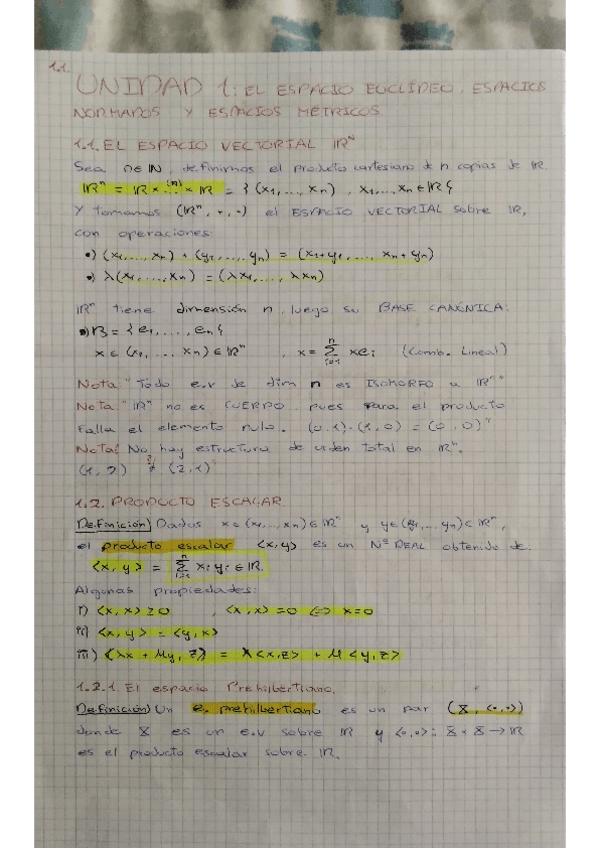 1.1.
UNIDAD 1: EL ESPACIO EUCLÍDEO, ESPACIOS
NORMADOS Y ESPACIOS MÉTRICOS
1.1. EL ESPACIO VECTORIAL ℝᴺ
Sea n∈ℕ, definimos el producto cartesiano de n copias de ℝ.
ℝⁿ = ℝ × .(n). × ℝ = { (x₁,..., xₙ) , x₁,..., xₙ ∈ ℝ }
Y tomamos (ℝⁿ, +, ·) el ESPACIO VECTORIAL sobre ℝ,
con operaciones:
•) (x₁,..., xₙ) + (y₁,..., yₙ) = (x₁+y₁,..., xₙ+yₙ)
•) λ(x₁,..., xₙ) = (λx₁,..., λxₙ)
ℝⁿ tiene dimensión n, luego su BASE CANÓNICA:
•) B = { e₁,..., eₙ }
x ∈ (x₁,... xₙ) ∈ ℝⁿ , x = Σⁿᵢ₌₁ xeᵢ (Comb. Lineal)
Nota: "Todo e.v de dim n es ISOMORFO a ℝⁿ"
Nota: "ℝⁿ no es CUERPO, pues para el producto
falla el elemento nulo. (0,1)·(1,0) = (0,0)"
Nota: No hay estructura de orden total en ℝⁿ.
(1,2) ≠ (2,1)
1.2. PRODUCTO ESCALAR
Definición) Dados x=(x₁,...,xₙ)∈ℝⁿ y y∈(y₁,...yₙ)⊂ℝⁿ,
el producto escalar <x,y> es un Nº REAL obtenido de:
<x,y> = Σⁿᵢ₌₁ xᵢ yᵢ ∈ ℝ.
Algunas propiedades:
i) <x,x> ≥ 0 , <x,x> = 0 ⇔ x=0
ii) <x,y> = <y,x>
iii) <λx + μy, z> = λ<x,z> + μ<y,z>
1.2.1. El espacio Prehilbertiano.
Definición) Un e. prehilbertiano es un par (X, <·,·>)
donde X es un e.v sobre ℝ y <·,·>: X × X → ℝ
es el producto escalar sobre ℝ.